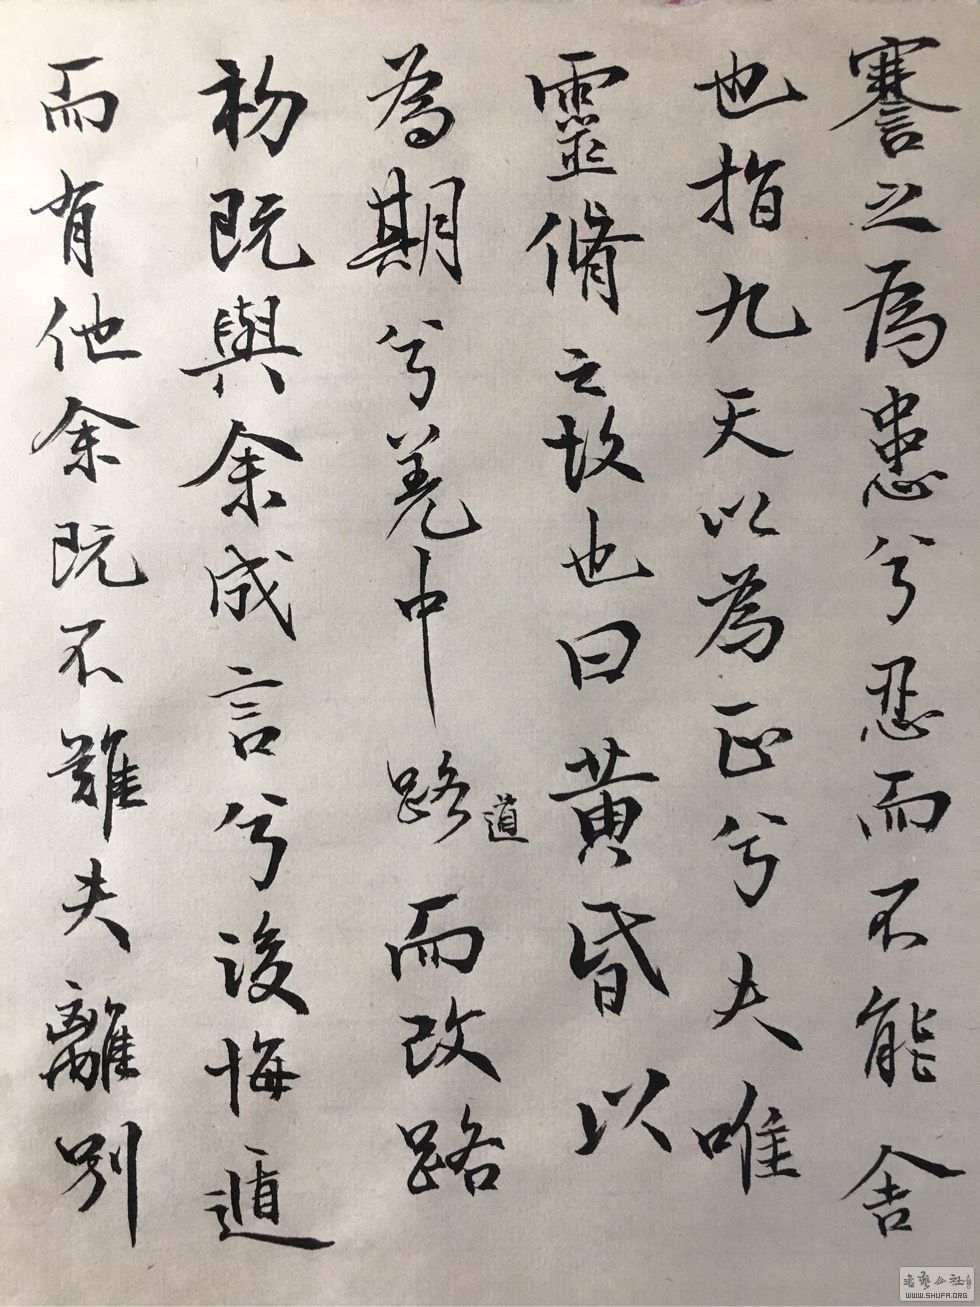 謇之為患兮忍而不能舍
也指九天以為正兮夫唯
靈脩之故也曰黄昏以
為期兮羌中路道而改路
初既與余成言兮後悔遁
而有他余既不難夫離別
書藝公社
WWW.SHUFA.ORG